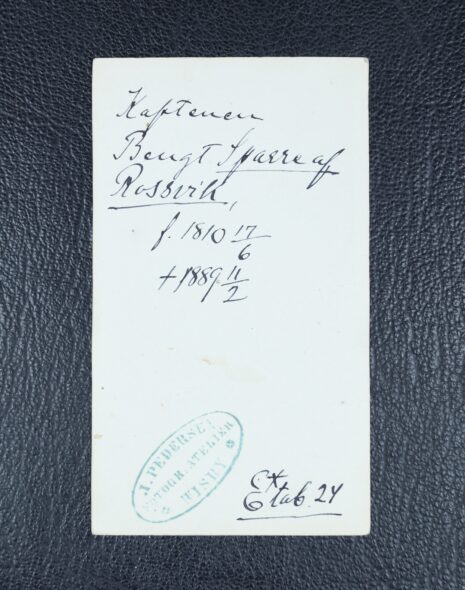 Kaptenen
Bengt Sparre af
Rossvik,
f. 1810 17/6
+ 1889 11/2
A. PEDERSEN
FOTOGR. ATELIER
VISBY
Ex
tab. 24